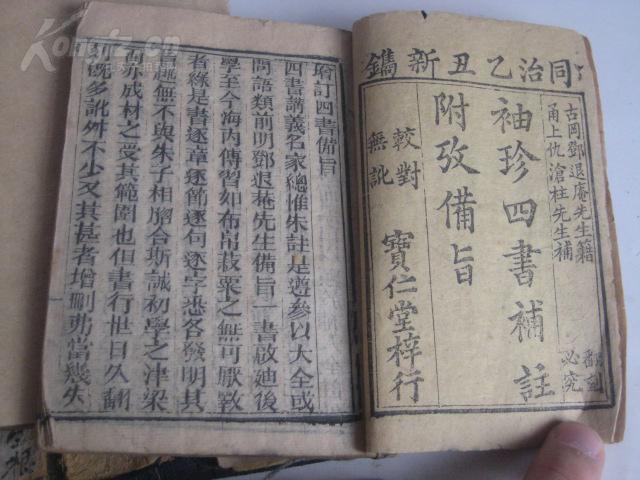 同治乙丑新鐫
古岡鄧退庵先生籍
甬上仇滄柱先生補
翻刻必究
袖珍四書補註
附攷備旨
較對無訛
寶仁堂梓行
增訂四書備旨
四書講義名家總惟朱註是遵參以大全或
問語類前明鄧退菴先生備旨一書啟廸後
學至今海內傳習如布帛菽粟之無可厭斁
者緣是書逐章逐節逐句逐字悉各發明其
趣無不與朱子相脗合斯誠初學之津梁
而亦成材之受其範圍也但書行世日久翻
刻旣多訛舛不少又其甚者增刪弗當幾失